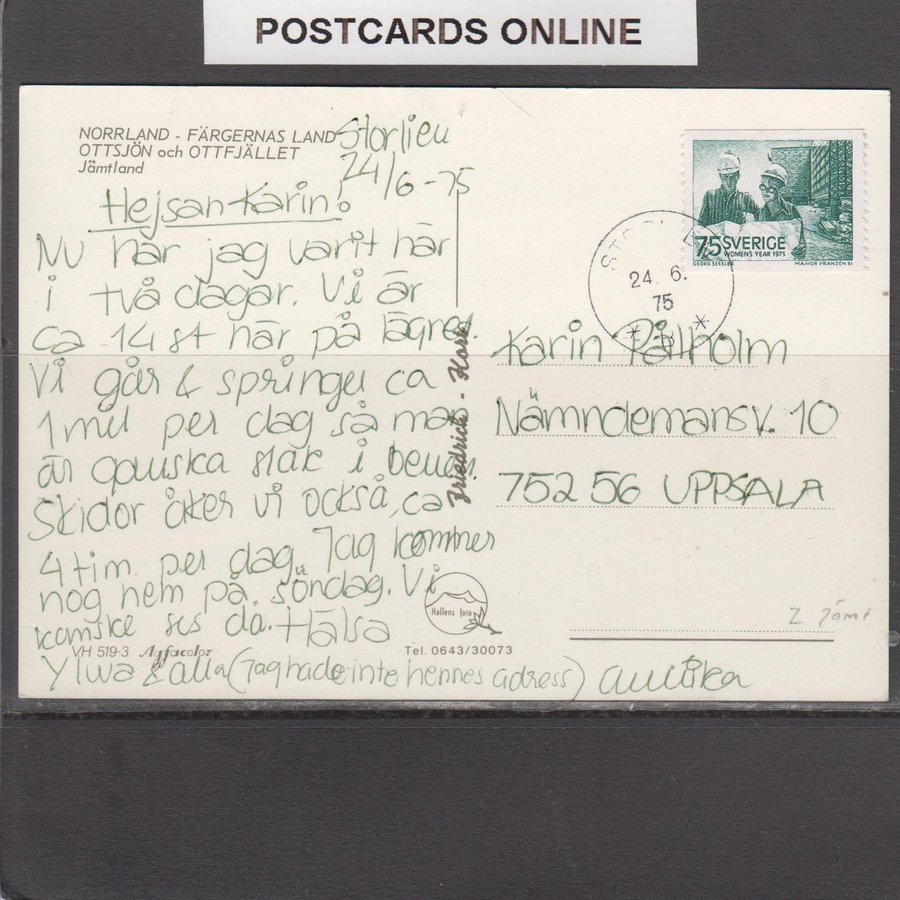 POSTCARDS ONLINE
NORRLAND - FÄRGERNAS LAND
OTTSJÖN och OTTFJÄLLET
Jämtland
Storlien
24/6-75
Hejsan Karin!
Nu har jag varit här
i två dagar. Vi är
ca 14 st här på lägret.
Vi går & springer ca
1 mil per dag så man
är ganska slak i benen.
Skidor åker vi också, ca
4 tim per dag. Jag kommer
nog hem på söndag. Vi
kanske ses då. Hälsa
Ylwa & alla (Jag hade inte hennes adress) Annika
VH 519-3 Agfacolor
Friedrich - Kort
Hallens foto
Tel. 0643/30073
75 SVERIGE
WOMENS YEAR 1975
GEORG SESSLER
MAJVOR FRANZÉN
24. 6.
75
* *
Karin Pålholm
Nämndemansv. 10
752 56 UPPSALA
Z Jämt